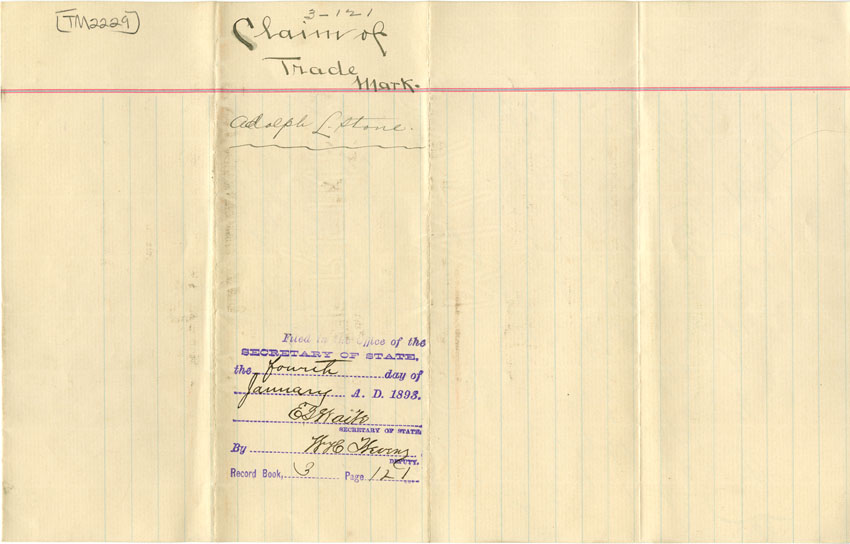 [TM2229]
3-121
Claim of
Trade
Mark.
Adolph L. Stone.
Filed in the office of the
SECRETARY OF STATE,
the fourth day of
January A. D. 1893.
E G Waite
SECRETARY OF STATE.
By W H C
DEPUTY.
Record Book, 3 Page 121